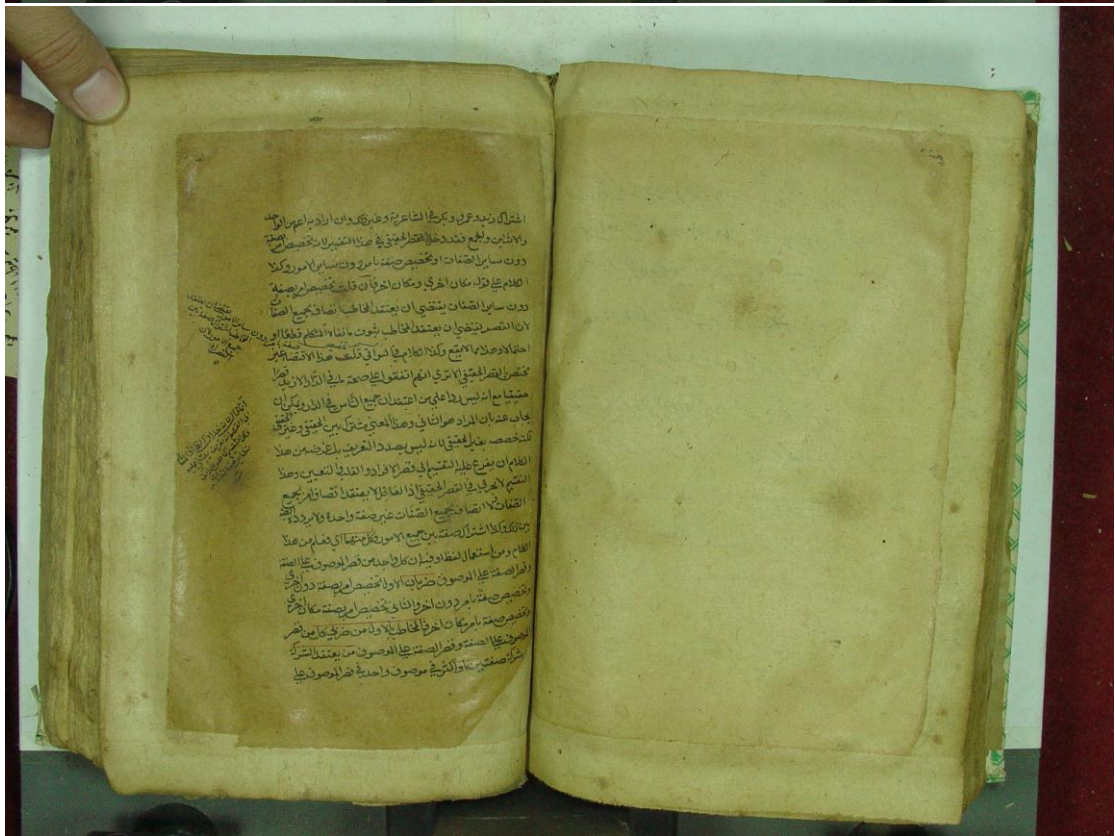 اشتراك زيد وعمرو وبكر في الشاعرية وغير ذلك وان اراد به اعم من الواحد
والاثنين والجمع فقد دخل القصر الحقيقي في هذا التفسير لان تخصيص امر بصفة
دون ساير الصفات او تخصيص صفة بامر دون ساير الامور وكذا
الكلام على قوله مكان اخرى ومكان اخر فان قلت تخصيص امر بصفة
دون ساير الصفات يقتضي ان يعتقد المخاطب اتصافه بجميع الصفات
لان القصر يقتضي ان يعتقد المخاطب ثبوت ما نفاه المتكلم قطعا او
احتمالا وهذا مما لا يقع وكذا الكلام في البواقي قلت هذا الاقتضاء غير
مختص بالقصر الحقيقي الا ترى انهم اتفقوا على صحة ما في الدار الا زيد قصرا
حقيقيا مع انه ليس ردا على من اعتقد ان جميع الناس في الدار ويمكن ان
يجاب عنه بان المراد هو الثاني وهذا المعنى مشترك بين الحقيقي وغير الحقيقي
لكنه خصصه بغير الحقيقي لانه ليس بصدد التعريف بل غرضه من هذا
الكلام ان يفرع عليه التقسيم الى قصر الافراد والقلب والتعيين وهذا
التقسيم لا يجري في القصر الحقيقي اذ العاقل لا يعتقد اتصاف امر بجميع
الصفات ولا اتصافه بجميع الصفات غير صفة واحدة ولا يردده
بين ذلك وكذا اشتراك صفة بين جميع الامور وكل منهما اي فعلم من هذا
الكلام ومن استعمال لفظ او فيه ان كل واحد من قصر الموصوف على الصفة
وقصر الصفة على الموصوف ضربان الاول تخصيص امر بصفة دون اخرى
وتخصيص صفة بامر دون اخر والثاني تخصيص امر بصفة مكان اخرى
وتخصيص صفة بامر مكان اخر فالمخاطب بالاول من ضربي كل من قصر
الموصوف على الصفة وقصر الصفة على الموصوف من يعتقد الشركة
شركة صفتين او اكثر في موصوف واحد في قصر الموصوف على